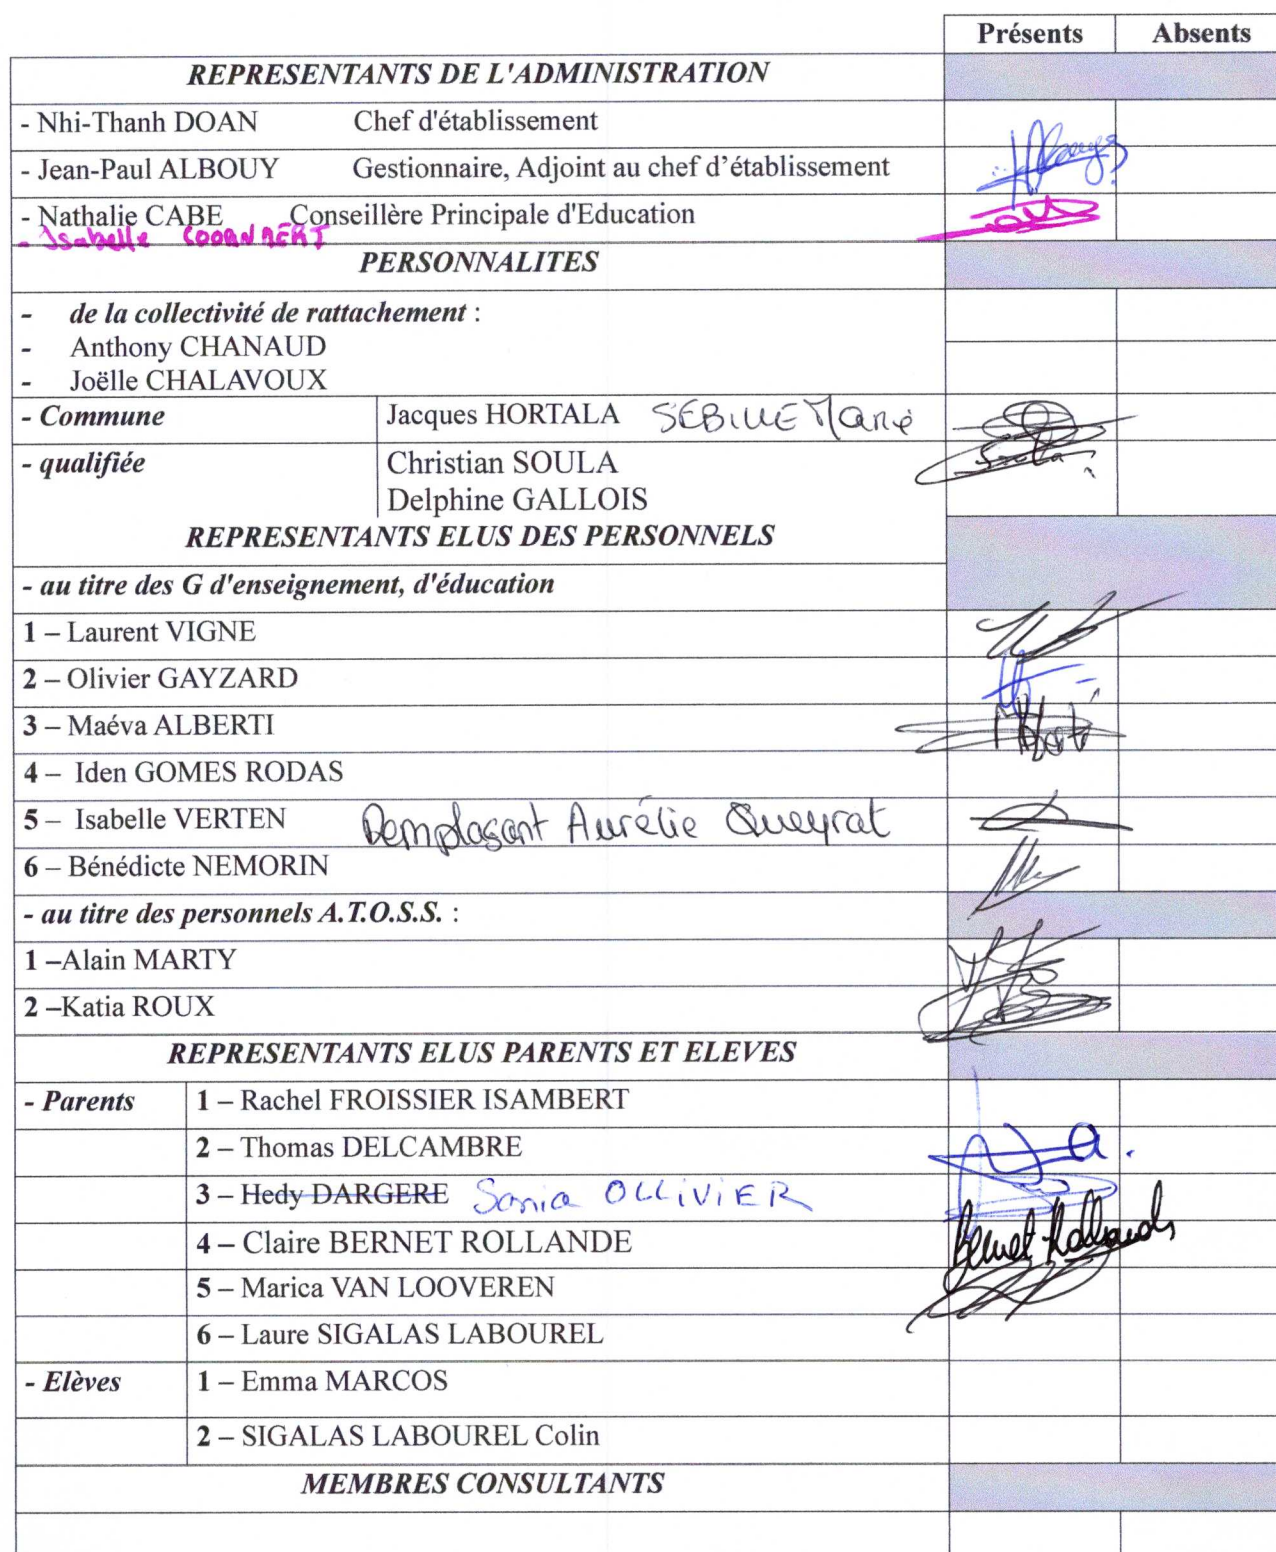 Présents Absents
REPRESENTANTS DE L'ADMINISTRATION
- Nhi-Thanh DOAN Chef d'établissement
- Jean-Paul ALBOUY Gestionnaire, Adjoint au chef d’établissement
- Nathalie CABE Conseillère Principale d'Education
- Isabelle COORNAERT
PERSONNALITES
- de la collectivité de rattachement :
- Anthony CHANAUD
- Joëlle CHALAVOUX
- Commune Jacques HORTALA SEBILLE Marie
- qualifiée Christian SOULA
Soula
Delphine GALLOIS
REPRESENTANTS ELUS DES PERSONNELS
- au titre des G d'enseignement, d'éducation
1 – Laurent VIGNE
2 – Olivier GAYZARD
3 – Maéva ALBERTI
4 – Iden GOMES RODAS
5 – Isabelle VERTEN Remplaçant Aurélie Queyrat
6 – Bénédicte NEMORIN
- au titre des personnels A.T.O.S.S. :
1 –Alain MARTY
2 –Katia ROUX
REPRESENTANTS ELUS PARENTS ET ELEVES
- Parents 1 – Rachel FROISSIER ISAMBERT
2 – Thomas DELCAMBRE
3 – Hedy DARGERE Sonia OLLIVIER
4 – Claire BERNET ROLLANDE Bernet Rollande
5 – Marica VAN LOOVEREN
6 – Laure SIGALAS LABOUREL
- Elèves 1 – Emma MARCOS
2 – SIGALAS LABOUREL Colin
MEMBRES CONSULTANTS